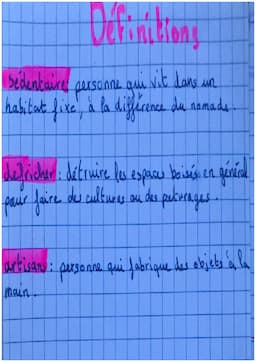 Définitions
sédentaire: personne qui vit dans un
habitat fixe, à la différence du nomade.
défricher: détruire les espaces boisés en général
pour faire des cultures ou des pâturages.
artisans: personne qui fabrique des objets à la
main.